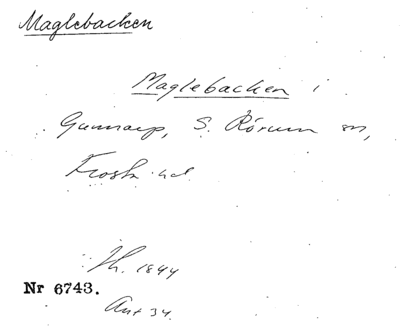 Maglebacken
Maglebacken i
Gunnarp, S. Rörum sn,
Frosta hd
Th. 1844
Nr 6743.
Ant 34.